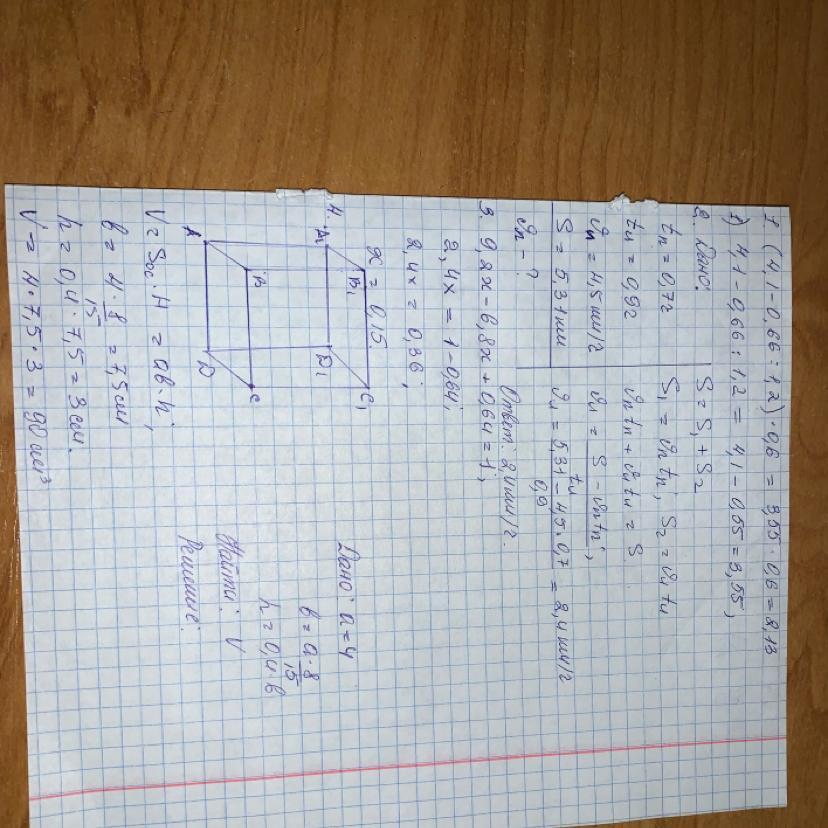 1 (4,1 - 0,66 : 1,2) · 0,6 = 3,55 · 0,6 = 2,13
1) 4,1 - 0,66 : 1,2 = 4,1 - 0,55 = 3,55;
2. Дано:
tп = 0,7ч
tн = 0,9ч
vп = 4,5 км/ч
S = 5,31 км
S = S1 + S2
S1 = vп tп; S2 = vн tн
vп tп + vн tн = S
vн = S - vп tп / tн;
vн = 5,31 - 4,5 · 0,7 / 0,9 = 2,4 км/ч
Ответ: 2,4 км/ч.
3. 9,2x - 6,8x + 0,64 = 1;
2,4x = 1 - 0,64;
2,4x = 0,36;
x = 0,15.
4.
A1 B1 C1 D1
A B C D
Дано: a = 4
b = a · 15/8
h = 0,4 · b
Найти: V
Решение:
V = Sос · H = ab · h;
b = 4 · 15/8 = 7,5 см
h = 0,4 · 7,5 = 3 см.
V = 4 · 7,5 · 3 = 90 см³